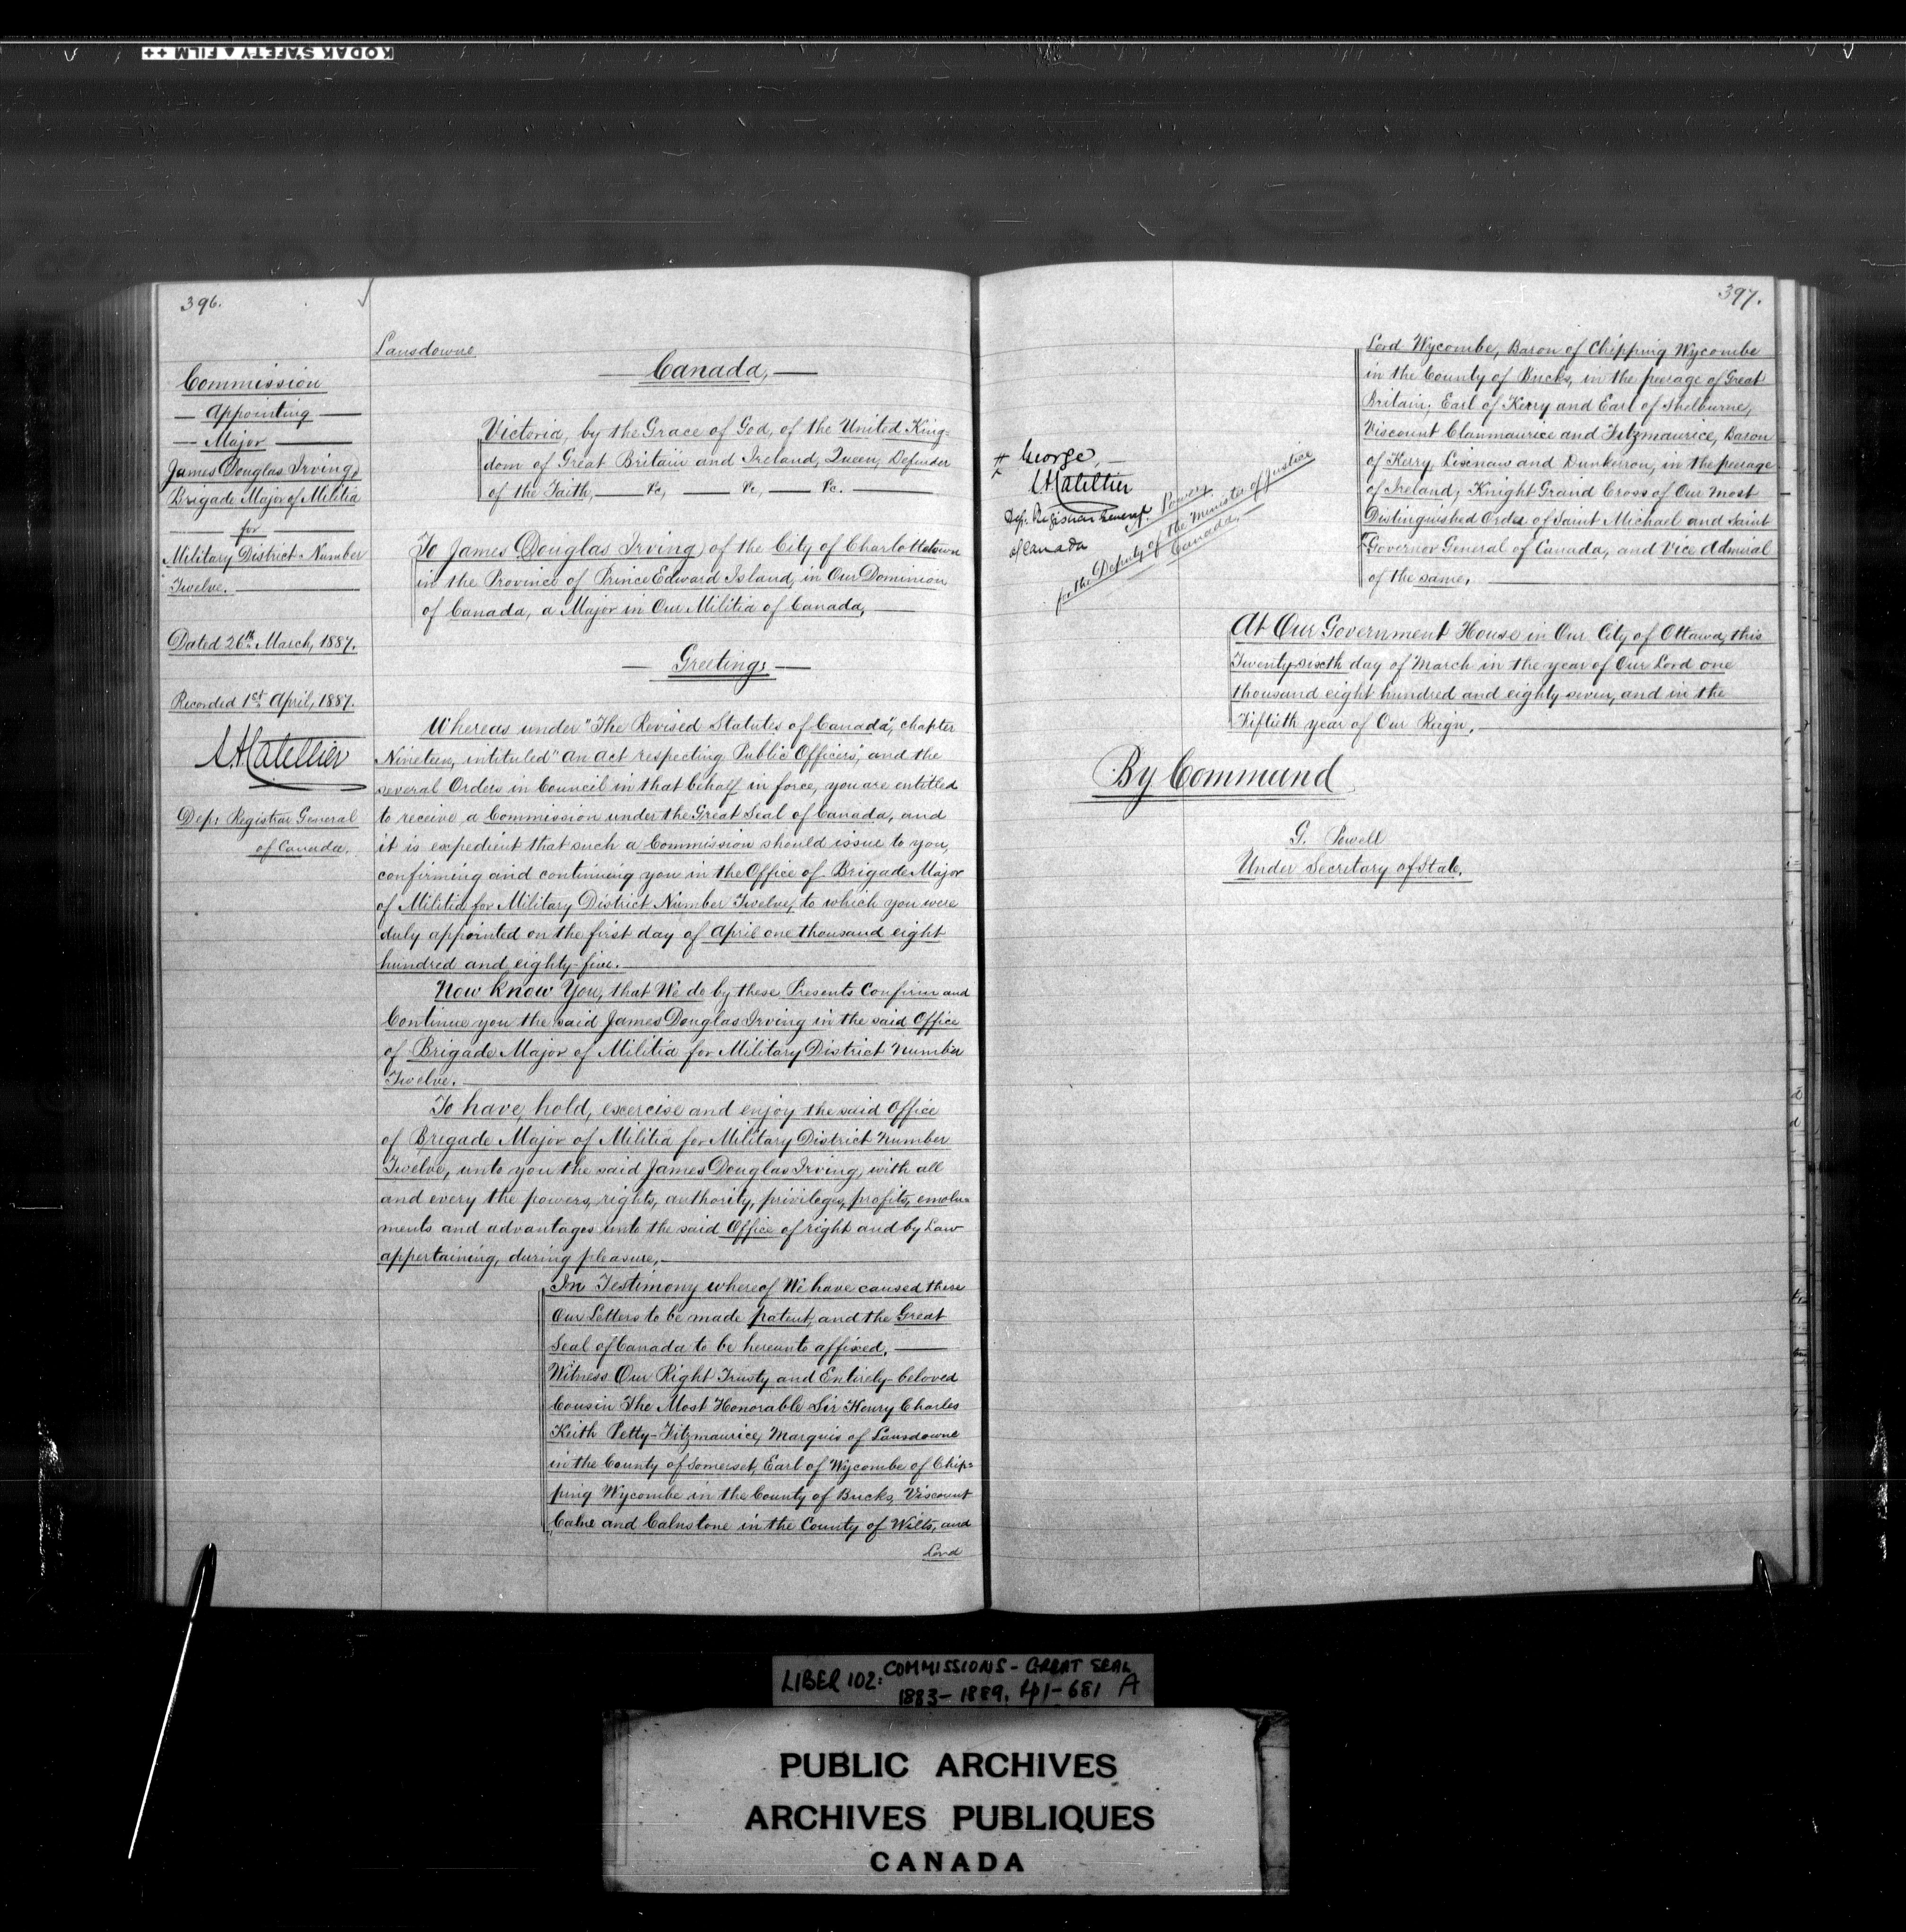 KODAK SAFETY FILM ++
396.
Commission
— Appointing —
— Major —
James Douglas Irving,
Brigade Major of Militia
— for —
Military District Number
Twelve. —
Dated 26th March, 1887.
Recorded 1st April, 1887.
Dep: Registrar General
of Canada.
Lansdowne
— Canada, —
Victoria, by the Grace of God, of the United King=
dom of Great Britain and Ireland, Queen, Defender
of the Faith, — &c, — &c, — &c. —
To James Douglas Irving, of the City of Charlottetown
in the Province of Prince Edward Island, in Our Dominion
of Canada, a Major in Our Militia of Canada, —
— Greeting: —
Whereas under "The Revised Statutes of Canada", chapter
Nineteen, intituled "An Act respecting Public Officers", and the
several Orders in Council in that behalf in force, you are entitled
to receive a Commission under the Great Seal of Canada, and
it is expedient that such a Commission should issue to you,
confirming and continuing you in the Office of Brigade Major
of Militia for Military District Number Twelve, to which you were
duly appointed on the first day of April one thousand eight
hundred and eighty-five. —
Now Know You, that We do by these Presents Confirm and
Continue you the said James Douglas Irving in the said Office
of Brigade Major of Militia for Military District Number
Twelve. —
To have, hold, exercise and enjoy the said Office
of Brigade Major of Militia for Military District Number
Twelve, unto you the said James Douglas Irving, with all
and every the powers, rights, authority, privileges, profits, emolu=
ments and advantages unto the said Office of right and by Law
appertaining, during pleasure, —
In Testimony whereof We have caused these
Our Letters to be made Patent, and the Great
Seal of Canada to be hereunto affixed. —
Witness Our Right Trusty and Entirely-beloved
Cousin The Most Honorable Sir Henry Charles
Keith Petty-Fitzmaurice, Marquis of Lansdowne
in the County of Somerset, Earl of Wycombe of Chip=
ping Wycombe in the County of Bucks, Viscount
Calne and Calnstone in the County of Wilts, and
Lord
397.
Lord Wycombe, Baron of Chipping Wycombe
in the County of Bucks, in the peerage of Great
Britain; Earl of Kerry and Earl of Shelburne,
Viscount Clanmaurice and Fitzmaurice, Baron
of Kerry, Lixnaw and Dunkerron, in the peerage
of Ireland; Knight Grand Cross of Our Most
Distinguished Order of Saint Michael and Saint
Governor General of Canada, and Vice Admiral
of the same. —
George, —
Dep. Registrar General
of Canada
A. Power
for the Deputy of the Minister of Justice
Canada. —
At Our Government House in Our City of Ottawa, this
Twenty-sixth day of March in the year of Our Lord one
thousand eight hundred and eighty seven, and in the
Fiftieth year of Our Reign. —
By Command
G. Powell
Under Secretary of State.
LIBER 102: COMMISSIONS - GREAT SEAL
1883 - 1889. 41 - 681 A
PUBLIC ARCHIVES
ARCHIVES PUBLIQUES
CANADA